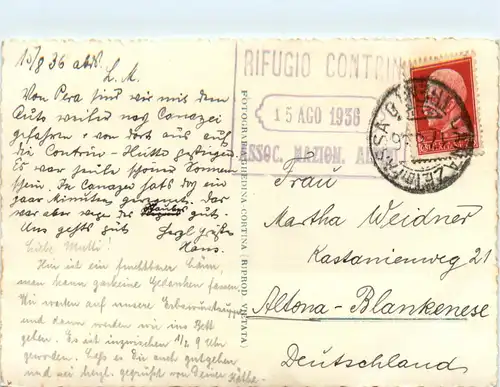 15/8 36 abds.
L. M.
Von Pera sind wir mit dem
Auto weiter nach Canazei
gefahren & von dort aus auf
die Contrin-Hütte gestiegen.
Es war heute schöner Sonnen
schein. In Canazei hats dreig ein
paar Minuten geregnet. Das
war aber wegen des Staubes gut.
Uns gehts gut. Herzl. Grüße
Hans.
Liebe Mutti!
Hier ist ein furchtbarer Lärm,
man kann garkeine Gedanken fassen.
Wir warten auf unsere Erbswurstsuppe
und dann werden wir ins Bett
gehen. Es ist inzwischen 1/2 9 Uhr
geworden. Lass es Dir auch gutgehen
und sei herzl. gegrüßt von Deiner Käthe.
FOTOGRAFIA GHEDINA, CORTINA (RIPROD. VIETATA)
RIFUGIO CONTRIN
15 AGO 1936
ASSOC. NAZION. AL
Frau
Martha Weidner
Kastanienweg 21
Altona-Blankenese
Deutschland